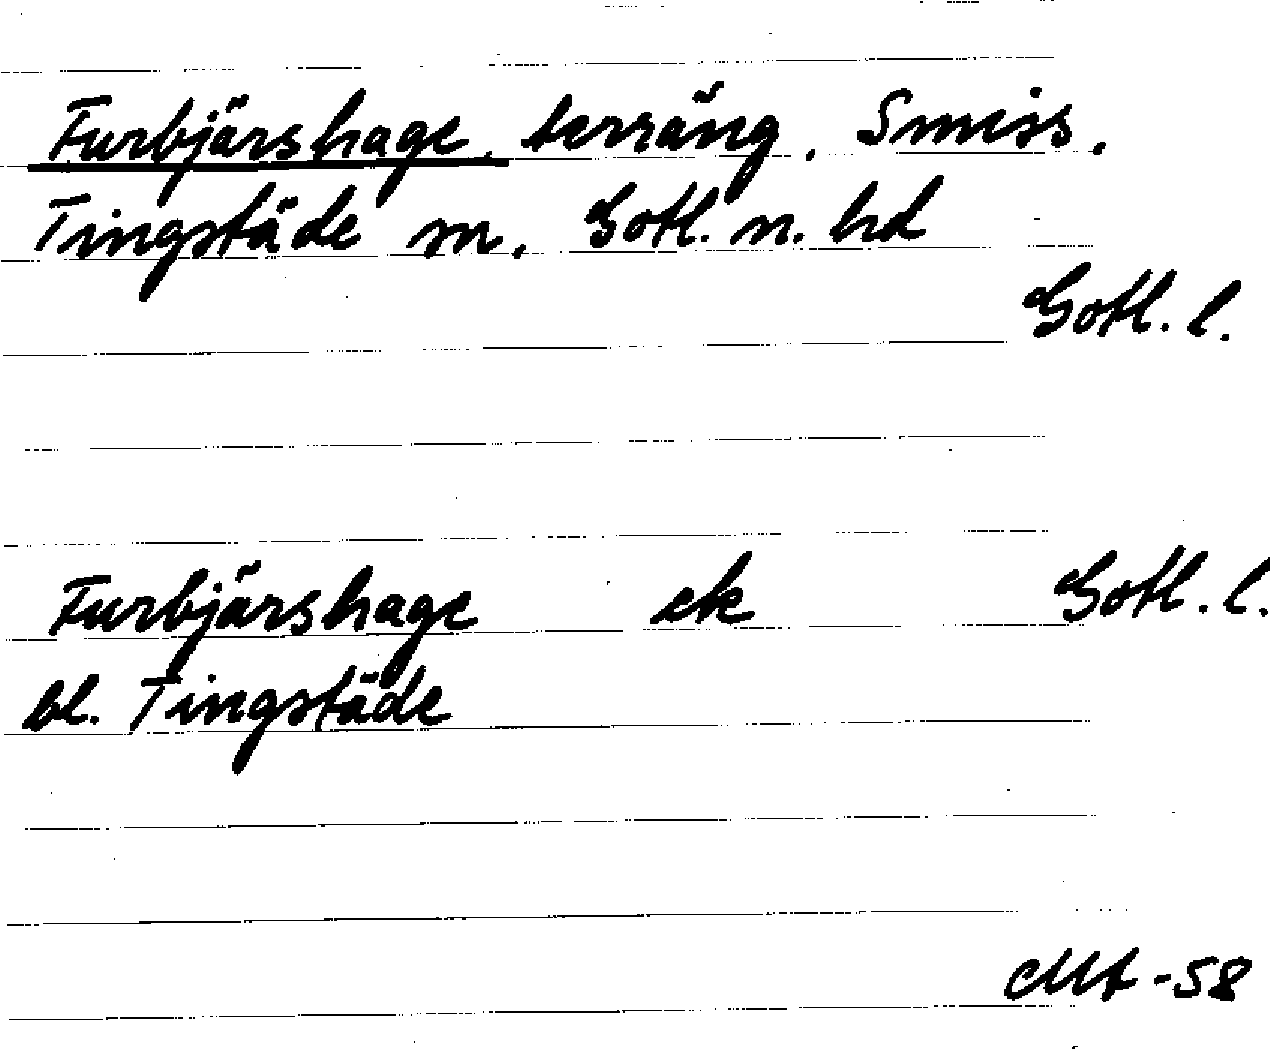 Furbjärshage, terräng, Smiss,
Tingstäde sn, Gotl. n. hd
Gotl. l.
Furbjärshage ek Gotl. l.
bl. Tingstäde
-58